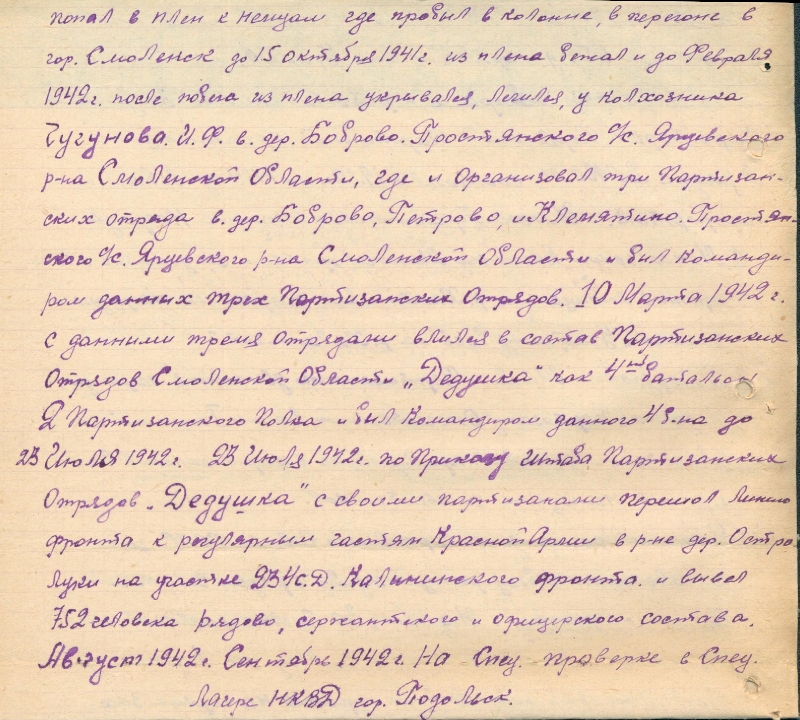 попал в плен к немцам где пробыл в колонне, в перегоне в
гор. Смоленск до 15 октября 1941г. из плена бежал и до Февраля
1942г. после побега из плена укрывался, лечился, у колхозника
Чугунова. И.Ф. в. дер. Боброво. Простянского с/с. Ярцевского
р-на Смоленской Области, где и Организовал три Партизан-
ских отряда в. дер. Боброво, Петрово, и Клемятино. Простян-
ского с/с. Ярцевского р-на Смоленской Области и был Команди-
ром данных трех Партизанских Отрядов. 10 Марта 1942 г.
с данными тремя отрядами влился в состав Партизанских
Отрядов Смоленской Области „Дедушка" как 4ый батальон
2 Партизанского Полка и был Командиром данного 4 б-на до
23 Июля 1942 г. 23 Июля 1942 г. по Приказу Штаба Партизанских
Отрядов „Дедушка" с своими партизанами перешол Линию
фронта к регулярным частям Красной Армии в р-не дер. Остро
луки на участке 234 с.д. Калининского фронта. и вывел
752 человека рядово, сержантского и офицерского состава.
Август 1942 г. Сентябрь 1942 г. На Спец. проверке в Спец.
Лагере НКВД гор. Подольск.